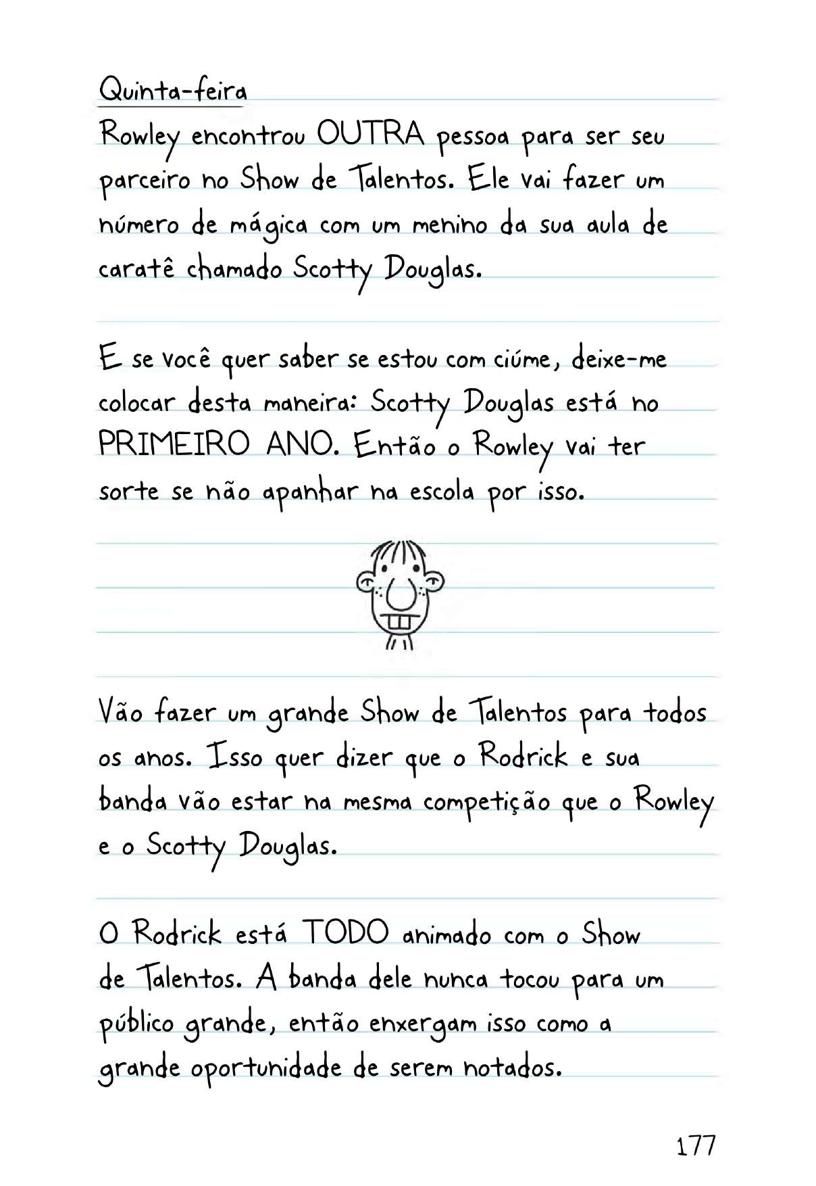 Quinta-feira
Rowley encontrou OUTRA pessoa para ser seu
parceiro no Show de Talentos. Ele vai fazer um
número de mágica com um menino da sua aula de
caratê chamado Scotty Douglas.
E se você quer saber se estou com ciúme, deixe-me
colocar desta maneira: Scotty Douglas está no
PRIMEIRO ANO. Então o Rowley vai ter
sorte se não apanhar na escola por isso.
Vão fazer um grande Show de Talentos para todos
os anos. Isso quer dizer que o Rodrick e sua
banda vão estar na mesma competição que o Rowley
e o Scotty Douglas.
O Rodrick está TODO animado com o Show
de Talentos. A banda dele nunca tocou para um
público grande, então enxergam isso como a
grande oportunidade de serem notados.
177